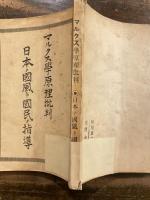 マルクス學原理批判
日本の國風と國民の指導
マルクス學原理批判
日本の國風と國